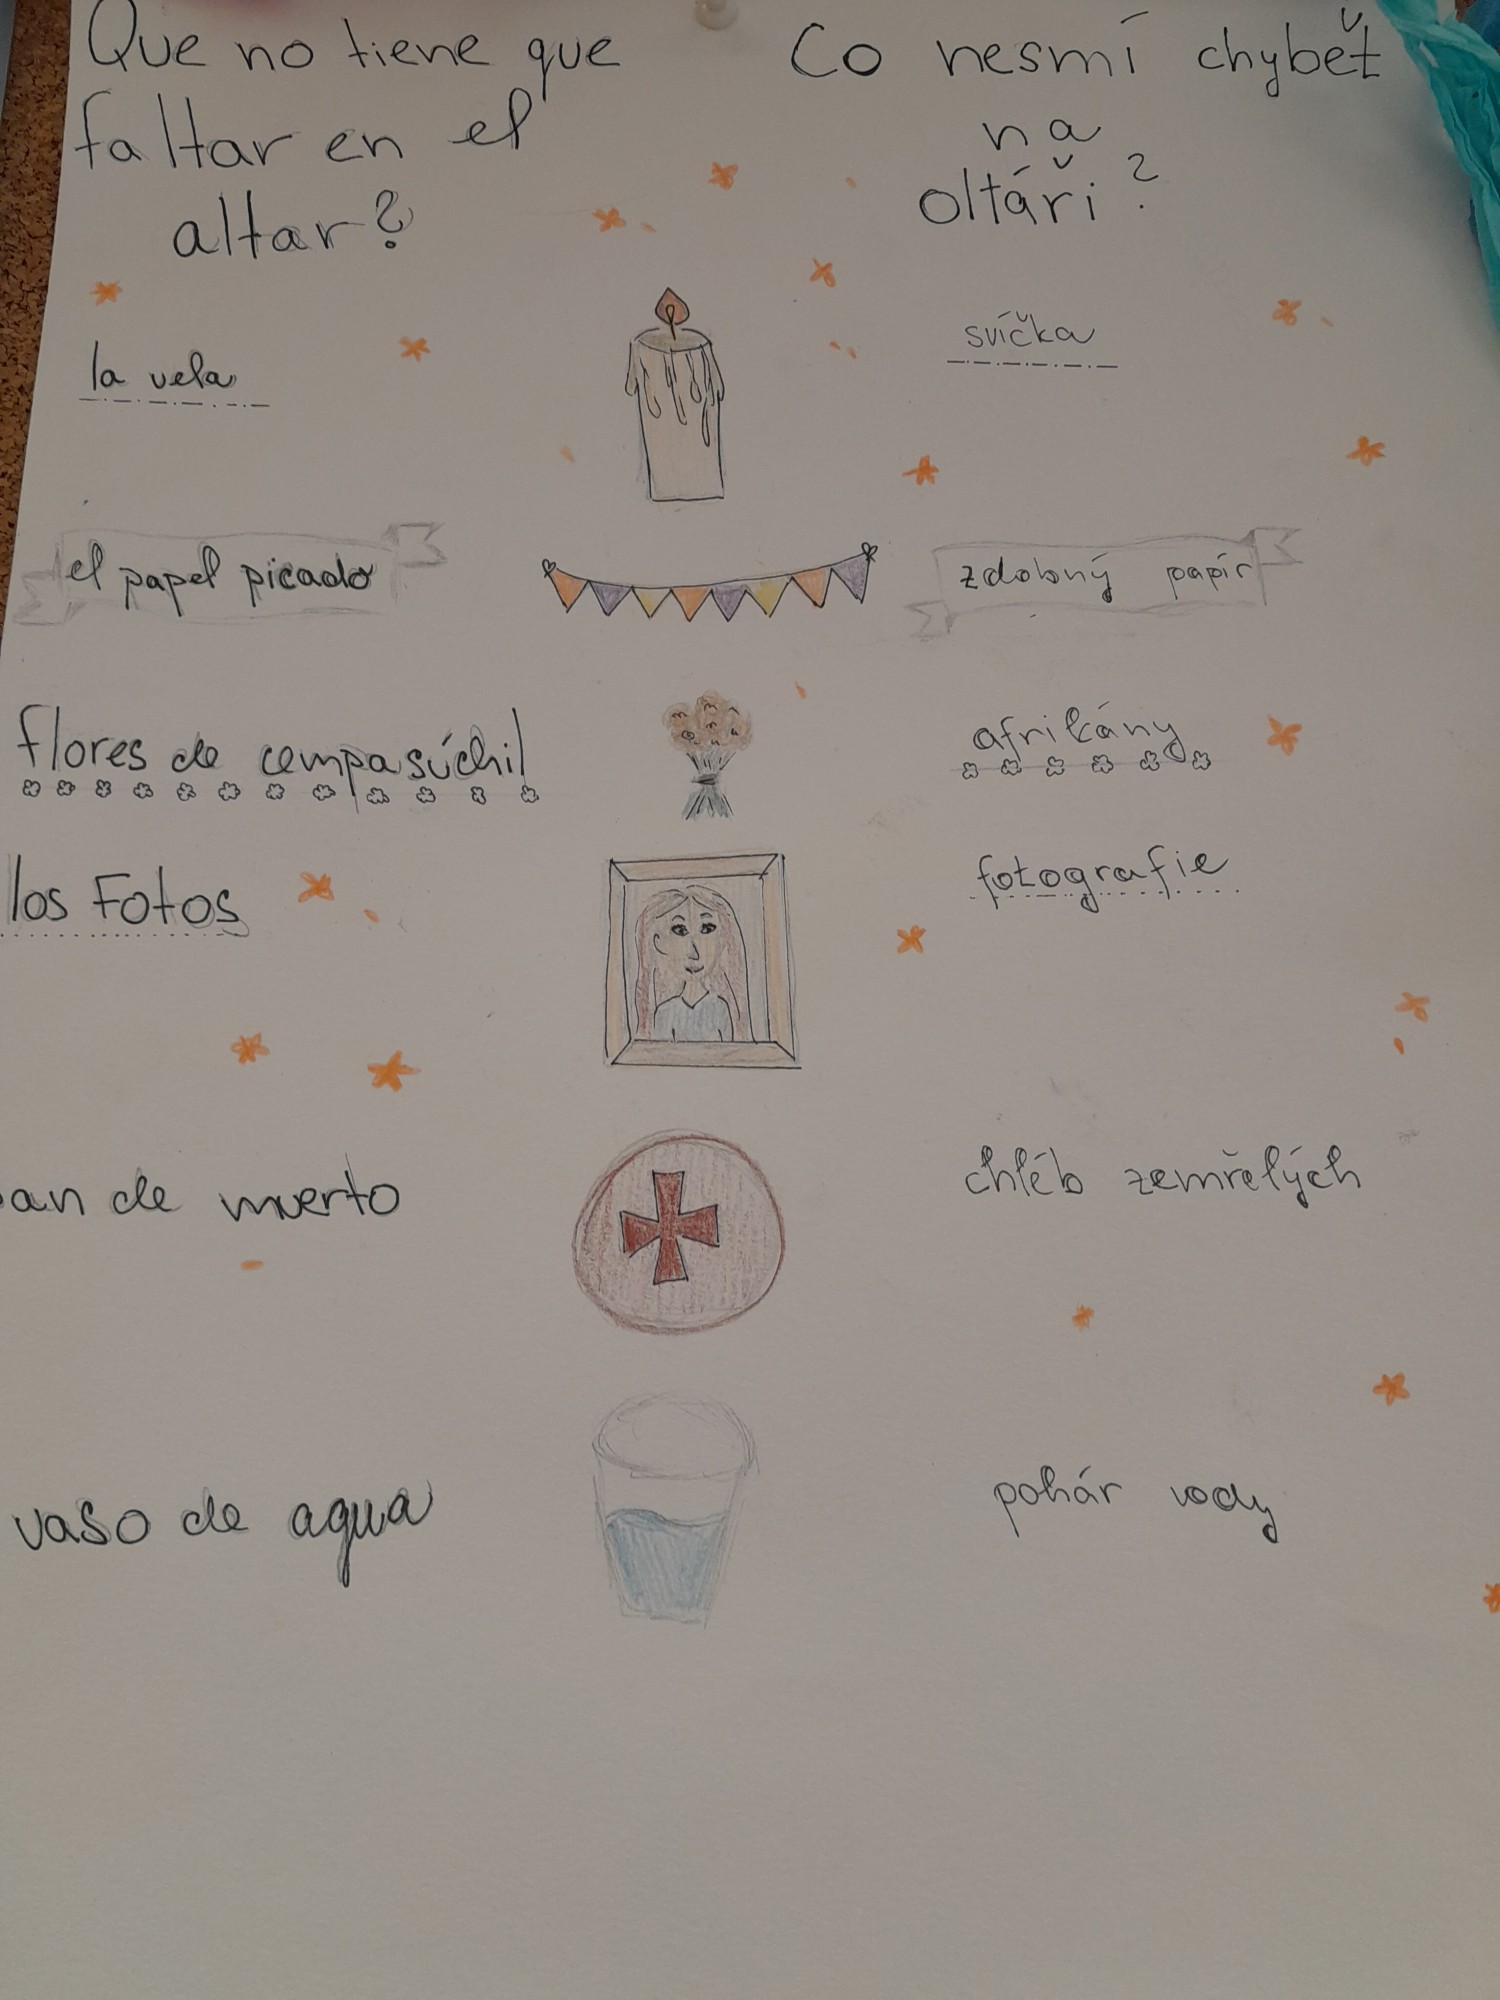 Que no tiene que
faltar en el
altar?
Co nesmí chybět
na
oltáři?
la vela
svíčka
el papel picado
zdobný papír
flores de cempasúchil
afrikány
los Fotos
fotografie
pan de muerto
chléb zemřelých
vaso de agua
pohár vody